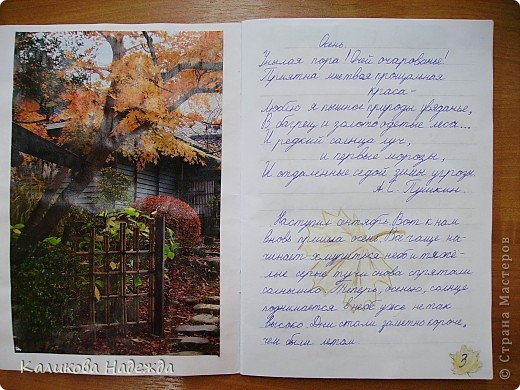 Осень.
Унылая пора! Очей очарованье!
Приятна мне твоя прощальная
краса -
Люблю я пышное природы увяданье,
В багрец и золото одетые леса...
И редкий солнца луч,
и первые морозы,
И отдалённые седой зимы угрозы
А.С. Пушкин.
Наступил сентябрь. Вот к нам
вновь пришла осень. Всё чаще на-
чинает хмуриться небо и тяжё-
лые серые тучи снова спрятали
солнышко. Теперь, осенью, солнце
поднимается в небе уже не так
высоко. Дни стали заметно короче,
чем были летом.
3
Каликова Надежда
© Страна Мастеров